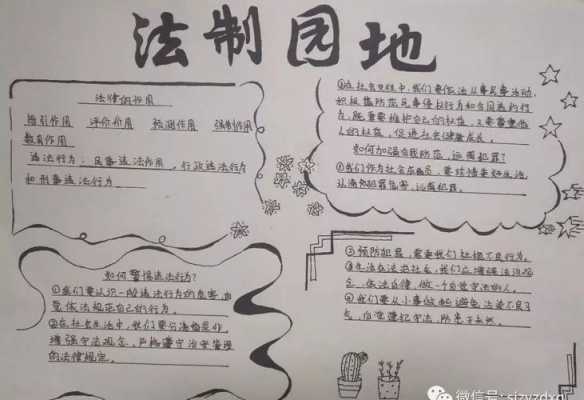 法制园地
法律的作用
指引作用 评价作用 预测作用 强制作用
教育作用
违法行为：民事违法作用，行政违法行为
和刑事违法行为
①在社会生活中，我们要依法从事民事活动，
积极预防民事侵权行为和合同违约行
为，既要维护自己的权益，又要尊重他
人的权益，促进社会健康成长。
如何加强自我防范，远离犯罪？
①我们作为社会成员，要珍惜美好生活，
认清犯罪危害，远离犯罪。
如何警惕违法行为？
①我们要认识一般违法行为的危害，自
觉依法规范自己的行为。
②在社会生活中，我们要分清是非，
增强守法观念，严格遵守治安管理
的法律规定。
②预防犯罪，需要我们杜绝不良行为。
③生活在法治社会，我们应增强法治观
念，依法自律，做一个自觉守法的人。
④我们要从小事做起，避免沾染不良习
气，自觉遵纪守法，防患于未然。
微信号: sfzyzdxq